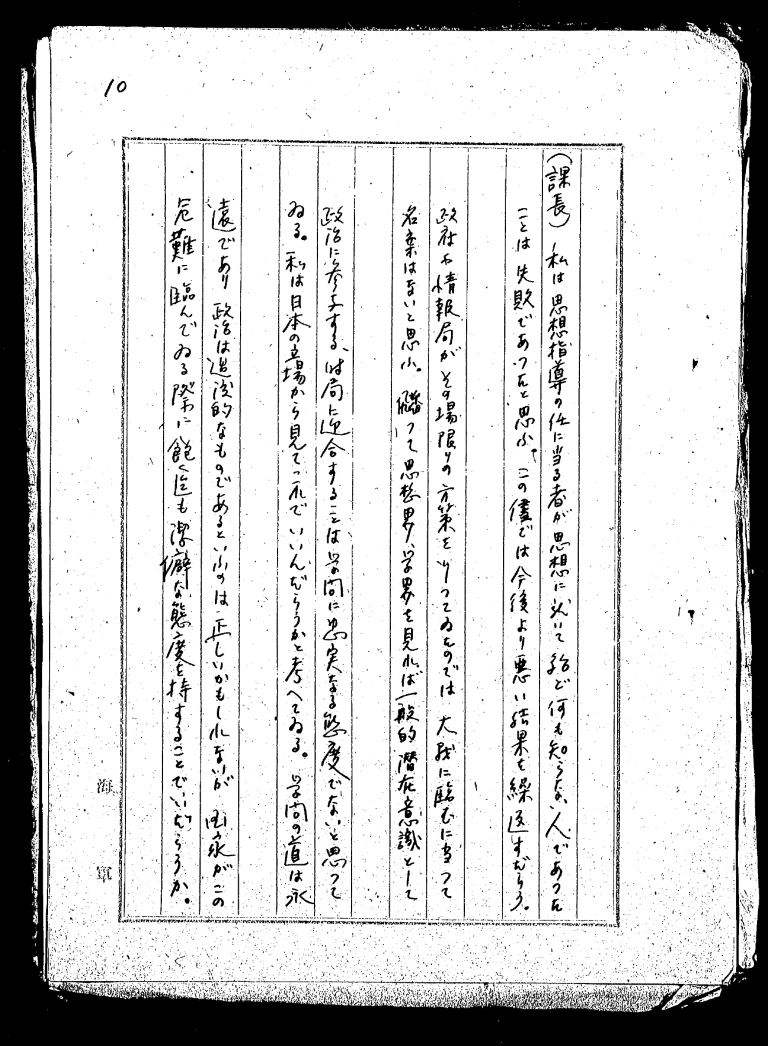 10
(課長) 私は思想指導の任に当る者が思想に就いて殆ど何も知らない人であつた
ことは失敗であつたと思ふ。この儘では今後より悪い結果を繰返すだらう。
政府や情報局がその場限りの方策をとつてゐたのでは大戦に臨むに当つて
名案はないと思ふ。飜つて思想界、学界を見れば一般的潜在意識として
政治に参与する、時局に迎合することは学問に忠実なる態度でないと思つて
ゐる。私は日本の立場から見てこれでいいんだらうかと考へてゐる。学問の道は永
遠であり政治は過渡的なものであるといふのは正しいかもしれないが国家がこの
危難に臨んでゐる際に飽く迄も潔癖な態度を持することでいいだらうか。
海軍